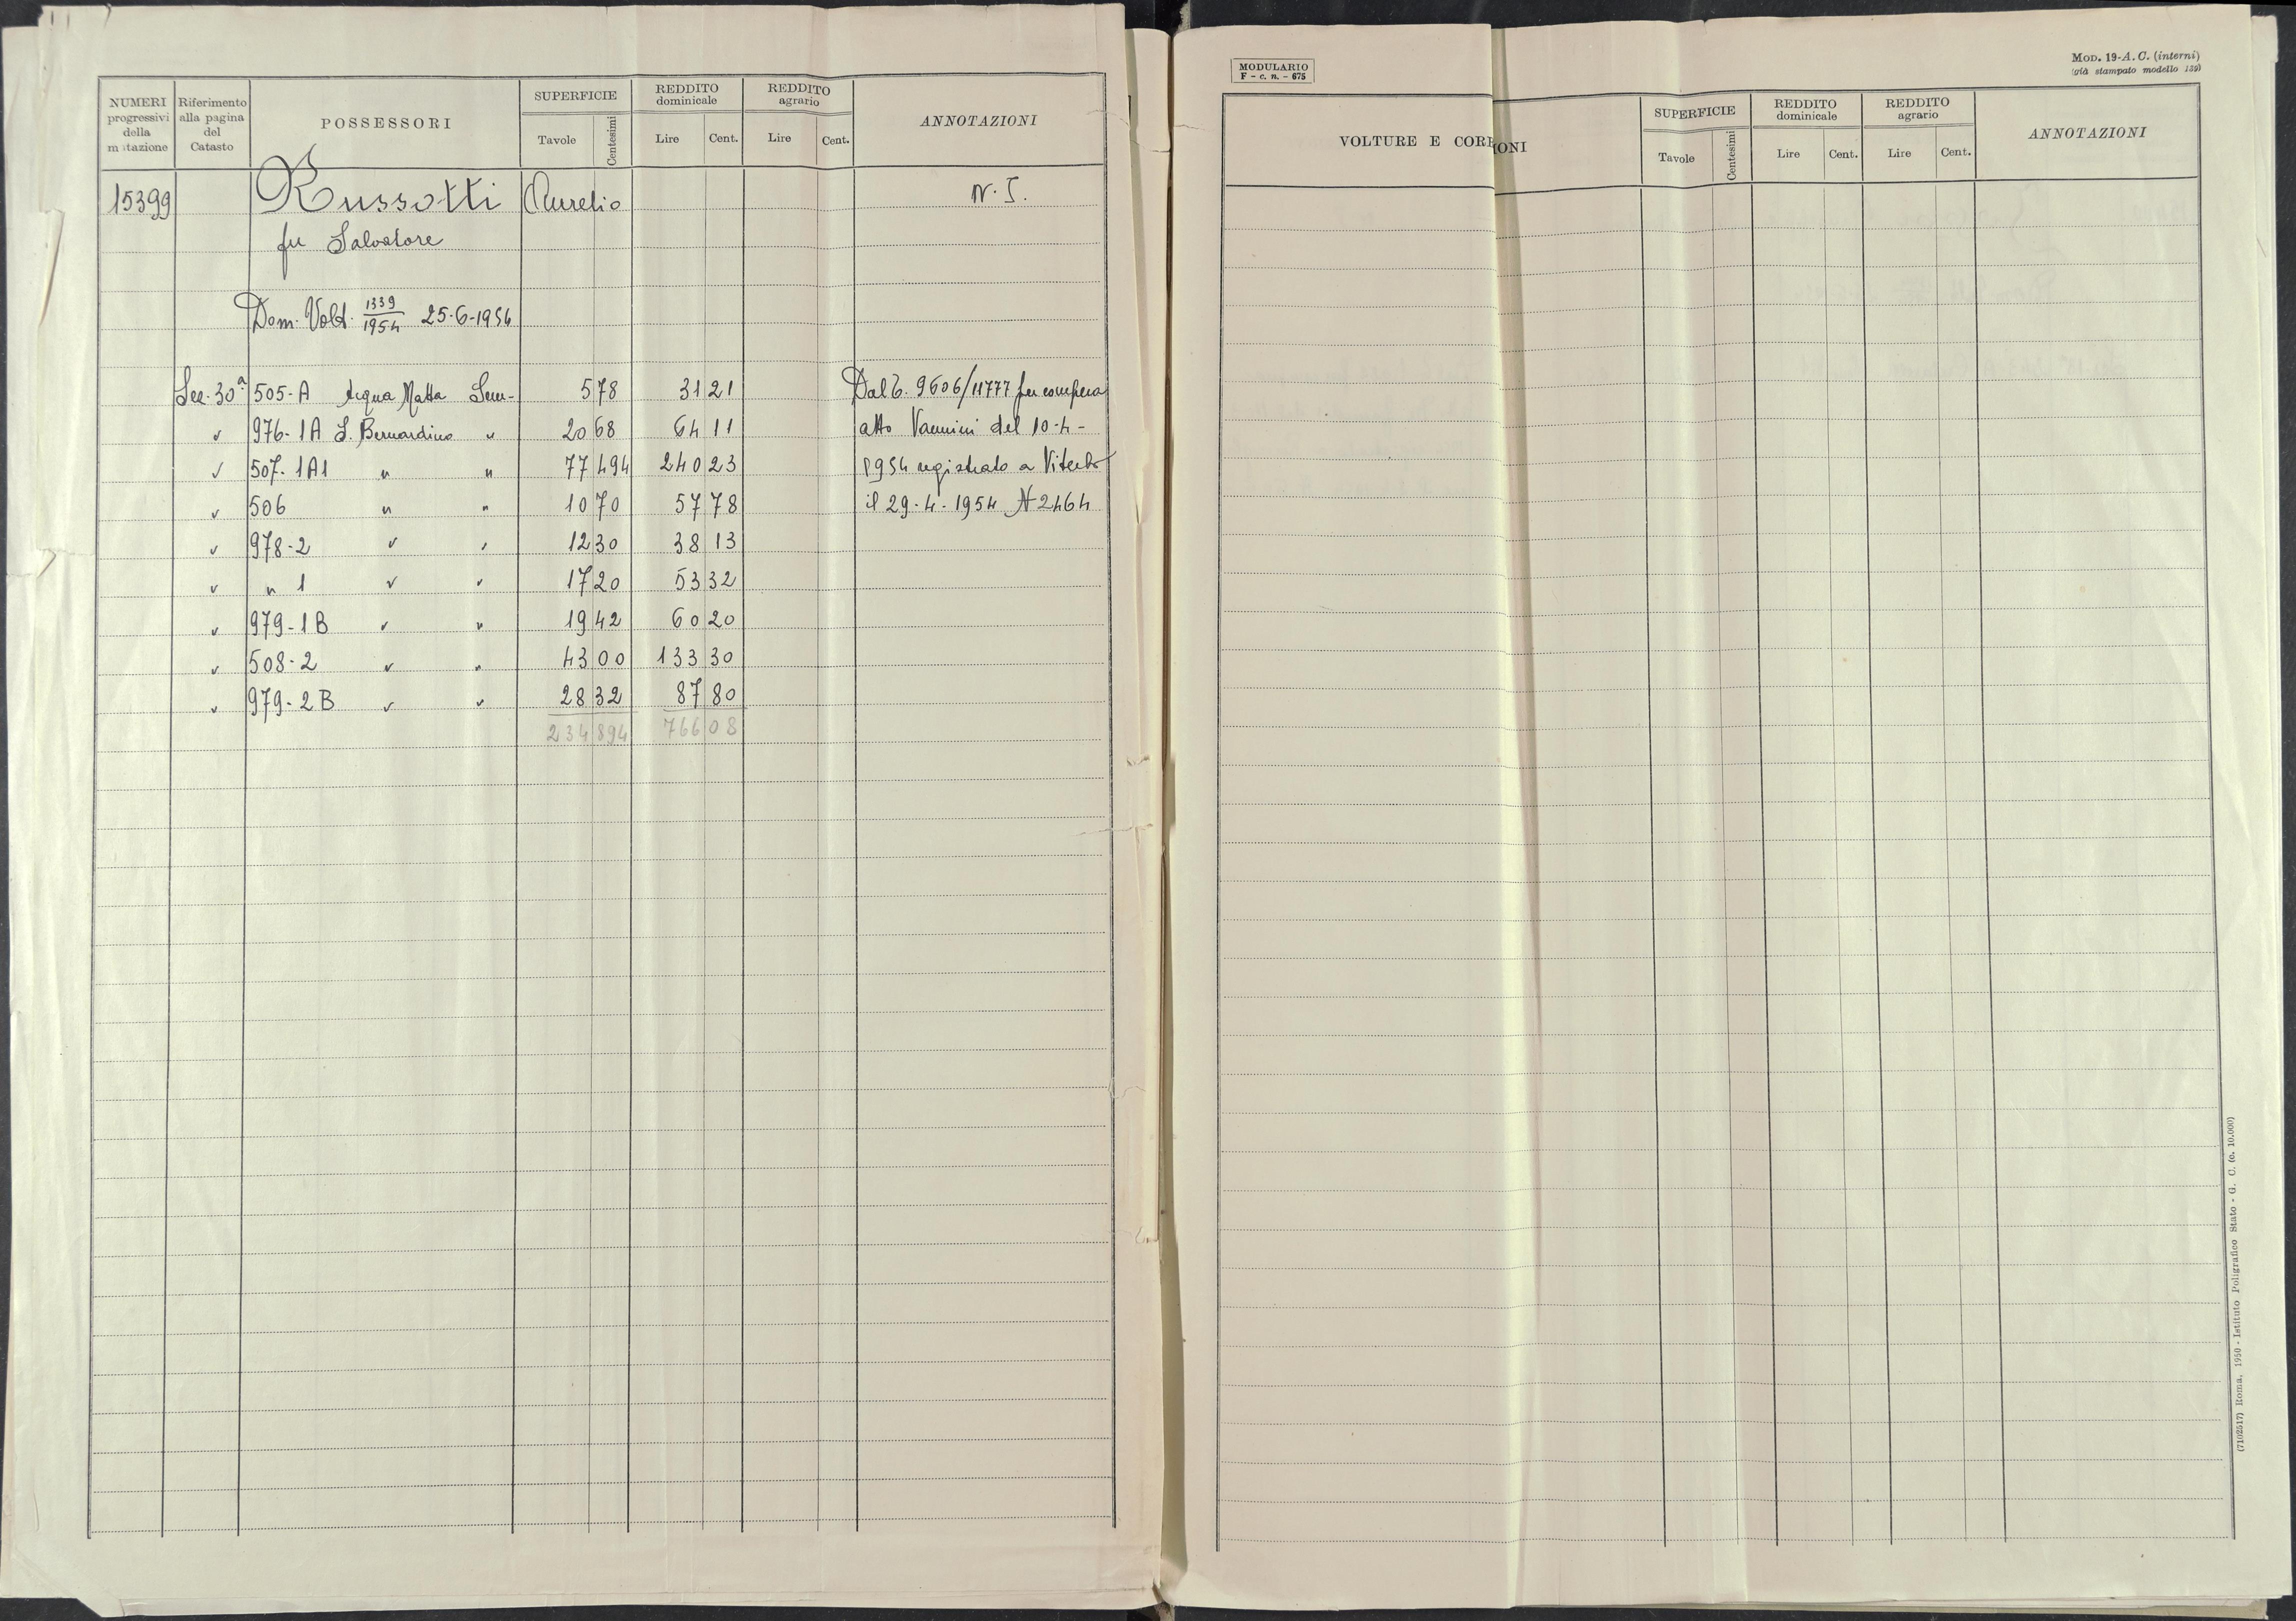 NUMERI progressivi della mutazione | Riferimento alla pagina del Catasto | POSSESSORI | SUPERFICIE Tavole Centesimi | REDDITO dominicale Lire Cent. | REDDITO agrario Lire Cent. | ANNOTAZIONI
15399 Russotti Aurelio N. I.
fu Salvatore
Dom. Volt. 1339/1954 25-6-1954
Sez. 30ª 505-A Acqua Matta Sem- 5 78 31 21 Dal C. 9606/11777 per compera
" 976-1A S. Bernardino " 20 68 64 11 atto Vannini del 10-4-
" 507-1A1 " " 77 494 240 23 1954 registrato a Viterbo
" 506 " " 10 70 57 78 il 29-4-1954 N 2464
" 978-2 " " 12 30 38 13
" " 1 " " 17 20 53 32
" 979-1B " " 19 42 60 20
" 508-2 " " 43 00 133 30
" 979-2B " " 28 32 87 80
234 894 766 08
MODULARIO
F - c. n. - 675
MOD. 19-A. C. (interni)
(già stampato modello 139)
VOLTURE E CORR IONI | SUPERFICIE Tavole Centesimi | REDDITO dominicale Lire Cent. | REDDITO agrario Lire Cent. | ANNOTAZIONI
(7102517) Roma, 1950 - Istituto Poligrafico Stato - G. C. (c. 10.000)